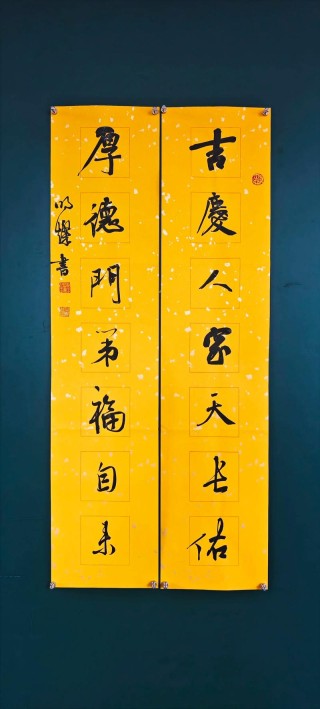 吉慶人家天長佑
厚德門第福自來
明燦書